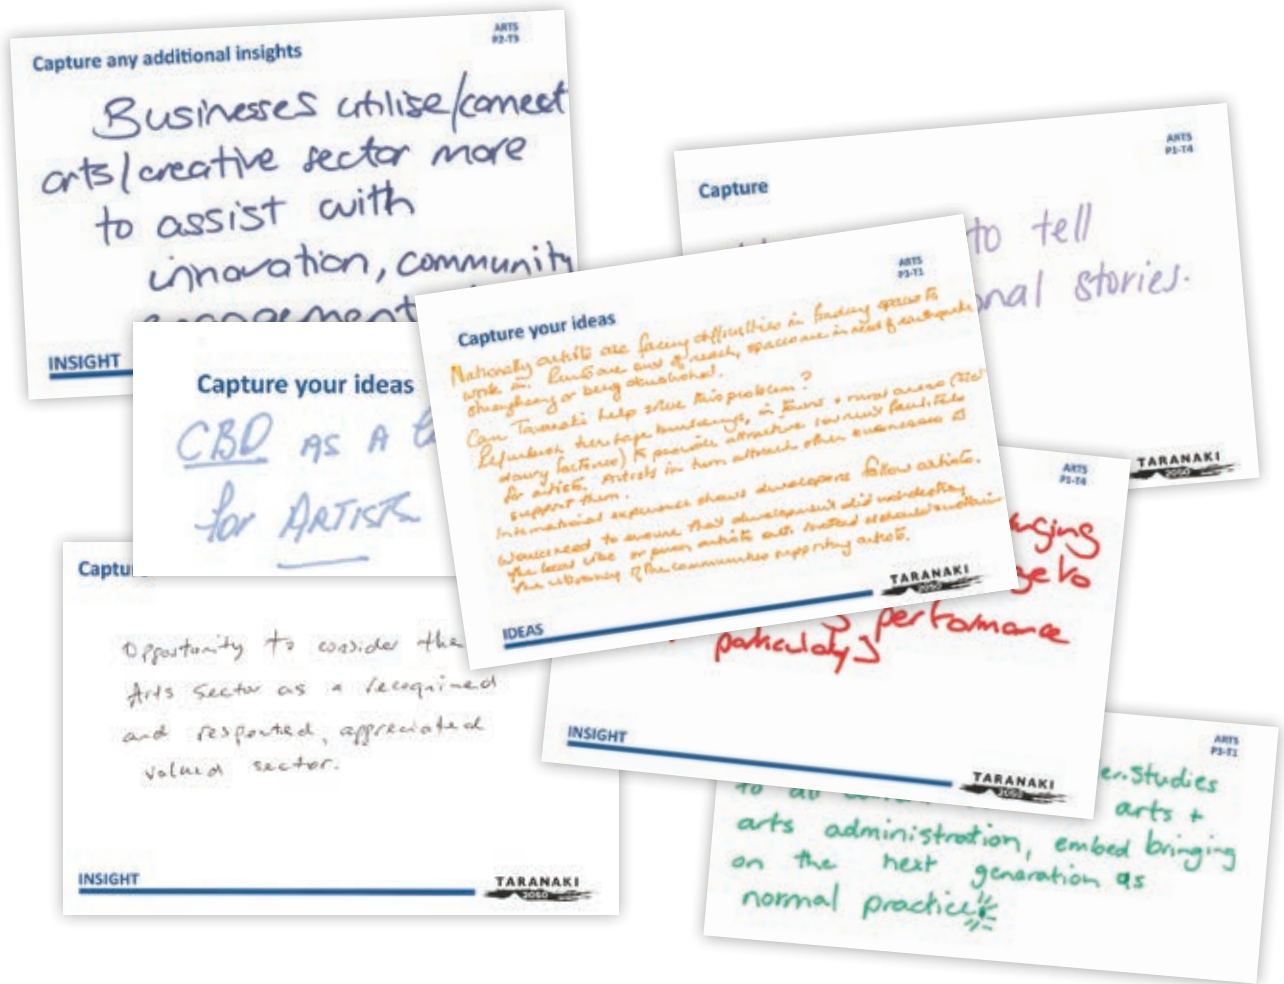 Capture any additional insights
ARTS
P2-T3
Businesses utilise/connect
arts/creative sector more
to assist with
innovation, community
engagement
INSIGHT
Capture
ARTS
P1-T4
to tell
stories.
Capture your ideas
ARTS
P3-T1
Nationally artists are facing difficulties in finding spaces to
work in. Rents are out of reach, spaces are in need of earthquake
strengthening or being demolished.
Can Taranaki help solve this problem?
Refurbish heritage buildings, in towns + rural areas
dairy factories) to provide attractive facilities
for artists. Artists in turn attract other businesses to
support them.
International experience shows developers follow artists.
Would need to ensure that development did not destroy
the local vibe or push artists out. Instead it should
the vibrancy of the communities supporting artists.
IDEAS
TARANAKI
2050
Capture your ideas
CBD AS A
for ARTISTS
TARANAKI
2050
ARTS
P1-T4
performance
particularly
INSIGHT
TARANAKI
2050
Opportunity to consider the
Arts sector as a recognised
and respected, appreciated
valued sector.
INSIGHT
TARANAKI
2050
ARTS
P3-T1
studies
to all arts +
arts administration, embed bringing
on the next generation as
normal practice